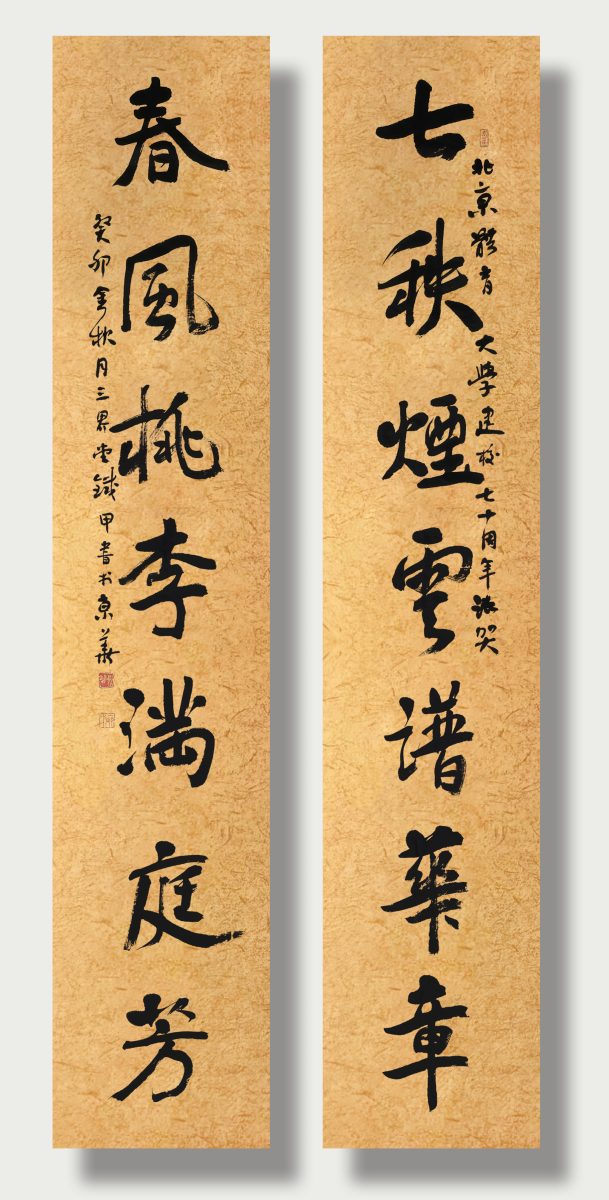 七秩煙雲譜華章
北京體育大學建校七十周年誌賀
春風桃李滿庭芳
癸卯金秋月三界堂鐵甲書於京華